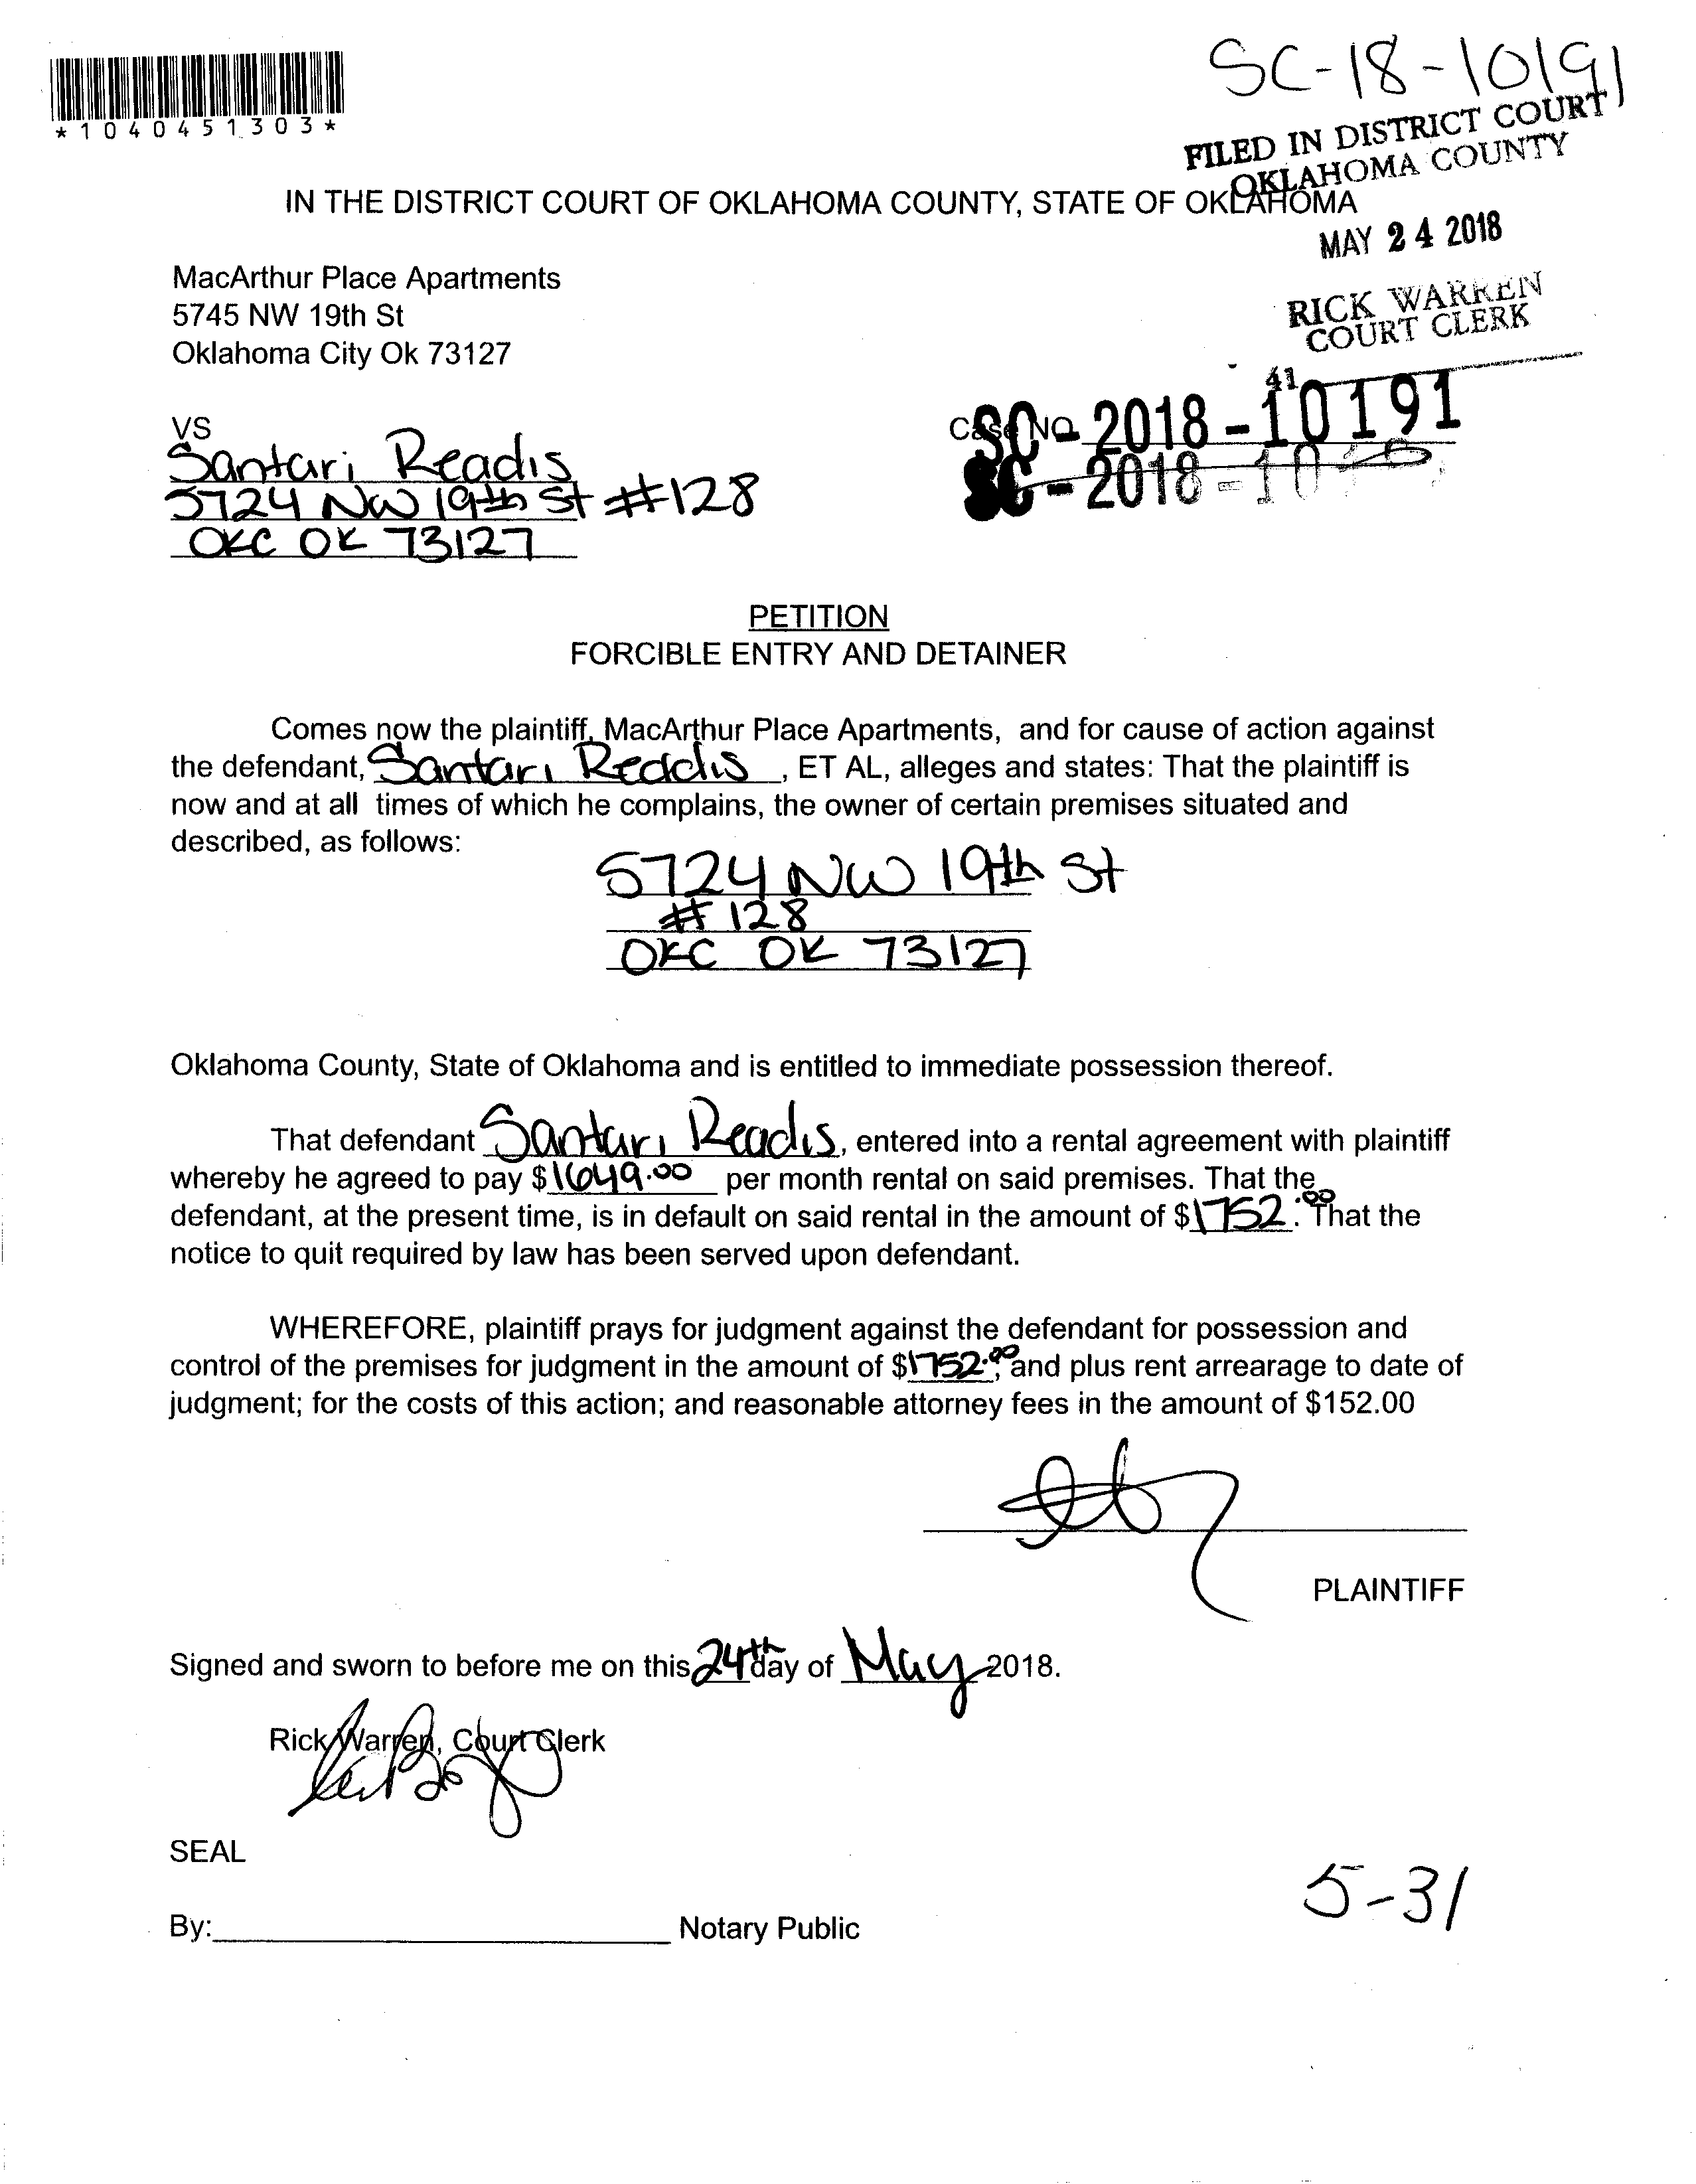 SC-18-10191
*1040451303*
FILED IN DISTRICT COURT
OKLAHOMA COUNTY
IN THE DISTRICT COURT OF OKLAHOMA COUNTY, STATE OF OKLAHOMA
MAY 24 2018
MacArthur Place Apartments
5745 NW 19th St
Oklahoma City Ok 73127
RICK WARREN
COURT CLERK
41
VS
Case NO. SC-2018-10191
Santari Readis
SC-2018-10
5724 NW 19th St #128
OKC OK 73127
PETITION
FORCIBLE ENTRY AND DETAINER
Comes now the plaintiff, MacArthur Place Apartments, and for cause of action against
the defendant, Santari Reddis, ET AL, alleges and states: That the plaintiff is
now and at all times of which he complains, the owner of certain premises situated and
described, as follows:
5724 NW 19th St
#128
OKC OK 73127
Oklahoma County, State of Oklahoma and is entitled to immediate possession thereof.
That defendant Santari Readis, entered into a rental agreement with plaintiff
whereby he agreed to pay $1649.00 per month rental on said premises. That the
defendant, at the present time, is in default on said rental in the amount of $1752.00. That the
notice to quit required by law has been served upon defendant.
WHEREFORE, plaintiff prays for judgment against the defendant for possession and
control of the premises for judgment in the amount of $1752.00, and plus rent arrearage to date of
judgment; for the costs of this action; and reasonable attorney fees in the amount of $152.00
PLAINTIFF
Signed and sworn to before me on this 24th day of May 2018.
Rick Warren, Court Clerk
SEAL
5-31
By: Notary Public